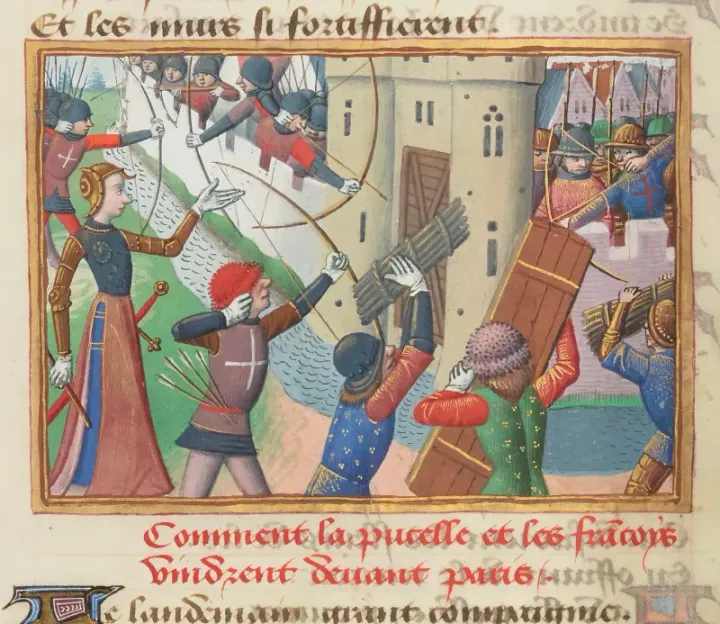 Et les murs si fortiffierent.
Comment la pucelle et les francoys
vindrent deuant paris :.
Le landemain grant compaignie.